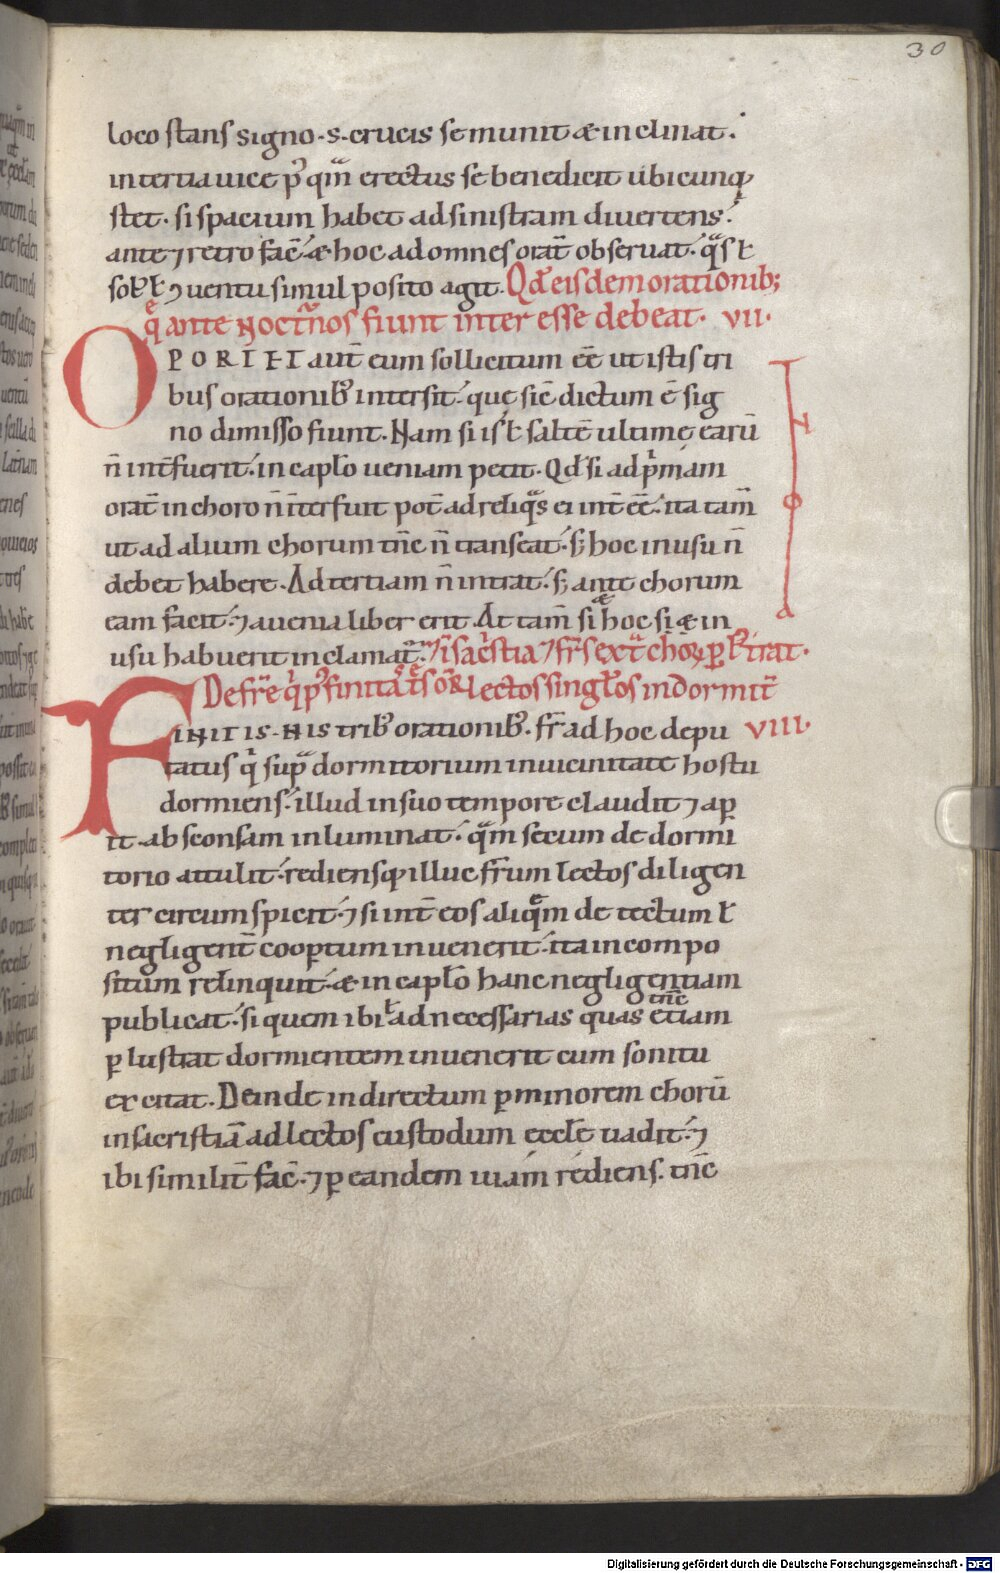 30
loco stans signo .s. crucis se munit & inclinat.
in tertia uice p͛ qm̅ erectus se benedicit ubicunq;
stet. si spacium habet ad sinistram diuertens.
ante ⁊ retro fac̅. & hoc ad omnes orat̅ obseruat.
uentu simul posito agit. Qd̅ eisdem orationib;
q̨ ante Noct̅nos fiunt inter esse debeat. VII.
OPORTET aut̅ eum sollicitum ee̅ ut istis tri
bus orationib; intersit. que sic̅ dictum e̅ sig
no dimisso fiunt. Nam si is ł salte̅ ultime̜ earu̅
n̅ int̅fuerit. in capl̅o ueniam petit. Qd̅ si ad p̍mam
orat̅ in choro n̅ int̅erfuit pot̅ ad reliq̅s ei int̅ ee̅. ita tam̅
ut ad alium chorum tn̅c n̅ transeat. s; hoc in usu n̅
debet habere. Ad tertiam n̅ intrat. s; ante chorum
eam facit. ⁊ a uenia liber erit. At tam̅ si & hoc si & in
usu habuerit inclamat̅.
De fr̅e lectos singl̅os in dormit̅
FINITIS HIS trib; orationib;. fr̅ ad hoc depu VIII.
tatus q̍ sup̅ dormitorium in uicinitate hostii
dormiens. illud in suo tempore claudit ⁊ ap̱
it. absconsam inluminat. q̅m secum de dormi
torio attulit. rediensq; illuc fr̅um lectos diligen
ter circumspicit. ⁊ si int̅ eos aliq̅m detectum ł
negligent̅ coop̱tum inuenerit. ita incompo
situm relinquit. & in capl̅o hanc negligentiam
publicat. si quem ibi ł ad necessarias quas etiam tn̅c
p̱lustrat dormientem inuenerit cum sonitu
excitat. Deinde in directum p̱ minorem choru̅
in sacristia̅ ad lectos custodum eccl̅e uadit. ⁊
ibi similit̅ fac̅. ⁊ p̱ eandem uiam rediens. tn̅c
Digitalisierung gefördert durch die Deutsche Forschungsgemeinschaft - DFG